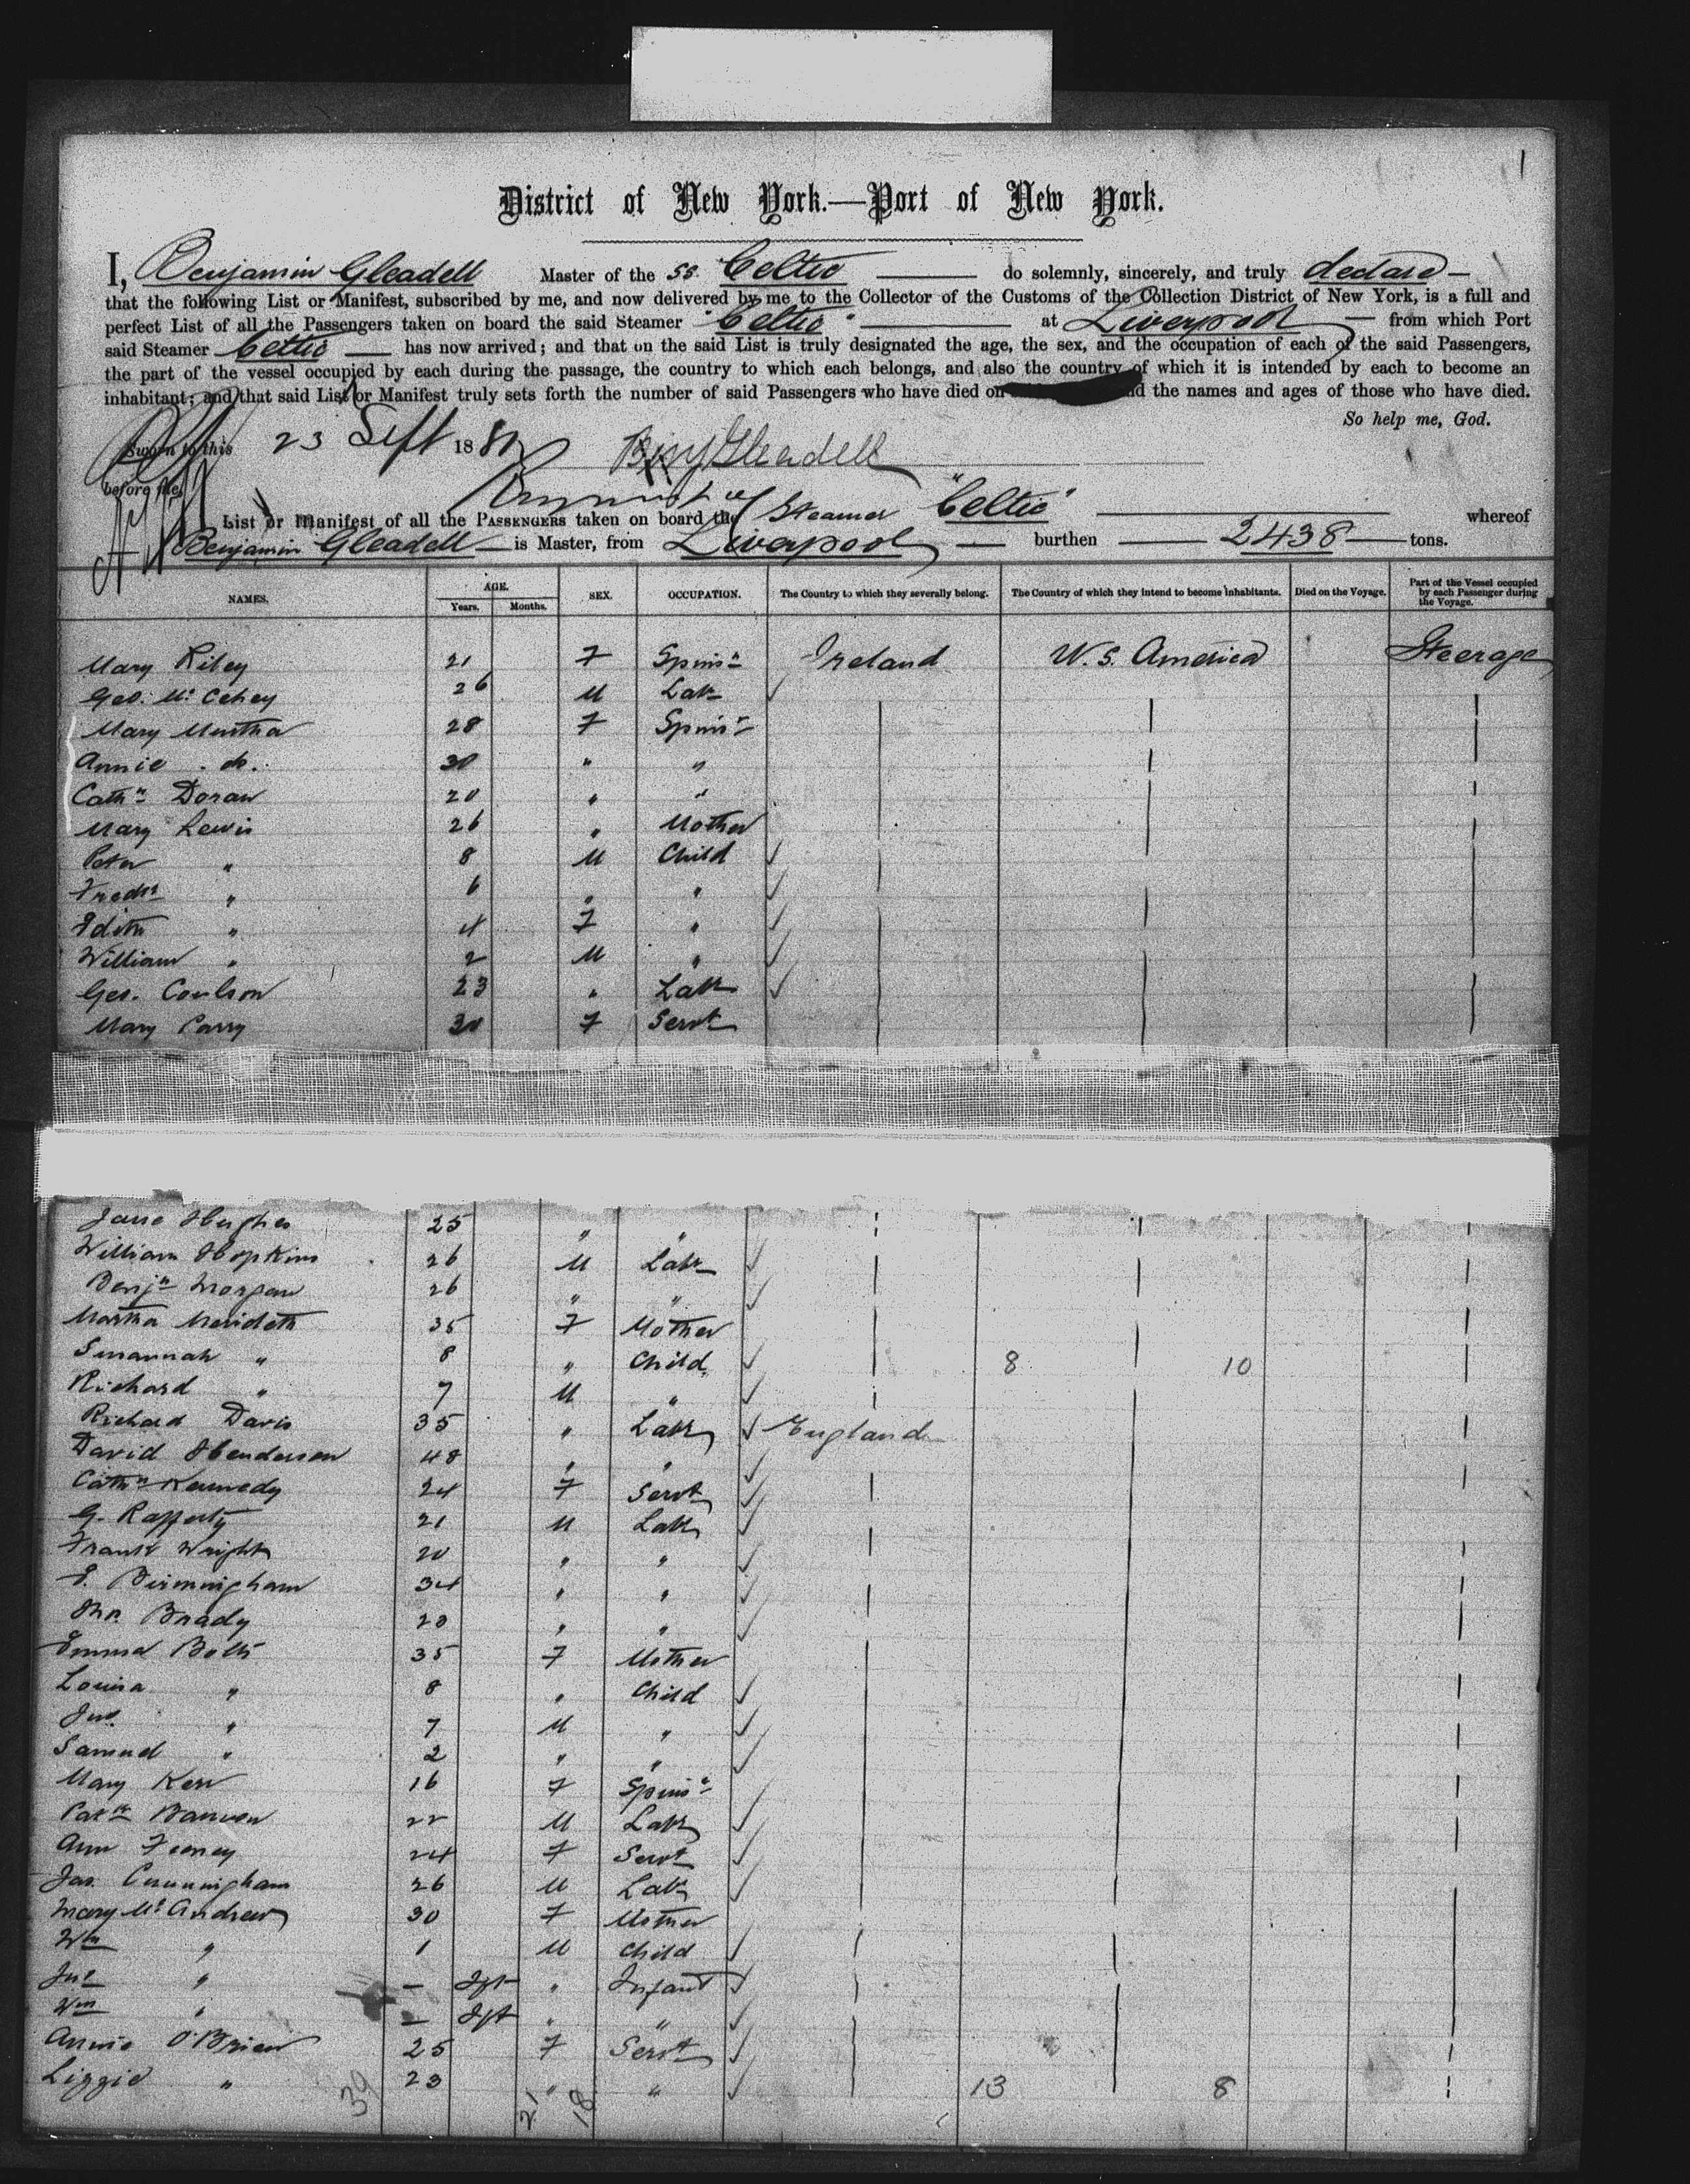 1
District of New York.—Port of New York.
I, Benjamin Gleadell Master of the SS. Celtic do solemnly, sincerely, and truly declare
that the following List or Manifest, subscribed by me, and now delivered by me to the Collector of the Customs of the Collection District of New York, is a full and
perfect List of all the Passengers taken on board the said Steamer "Celtic" at Liverpool from which Port
said Steamer Celtic has now arrived; and that on the said List is truly designated the age, the sex, and the occupation of each of the said Passengers,
the part of the vessel occupied by each during the passage, the country to which each belongs, and also the country of which it is intended by each to become an
inhabitant; and that said List or Manifest truly sets forth the number of said Passengers who have died on the names and ages of those who have died.
So help me, God.
Sworn to this 23 Sept 188 Benj Gleadell
before me
List or Manifest of all the PASSENGERS taken on board the Steamer "Celtic" whereof
Benjamin Gleadell is Master, from Liverpool burthen 2438 tons.
NAMES. AGE. Years. Months. SEX. OCCUPATION. The Country to which they severally belong. The Country of which they intend to become inhabitants. Died on the Voyage. Part of the Vessel occupied by each Passenger during the Voyage.
Mary Riley 21 F Spinsr Ireland U.S. America Steerage
Geo. 26 M Labr
Mary Murtha 28 F Spinsr
Annie do. 30 " "
Cathn Doran 20 " "
Mary Lewis 26 " Mother
Peter " 8 M Child
Fredk " 6 " "
Edith " 4 F "
William " 2 M "
Geo. Coulson 23 " Labr
Mary Parry 30 F Servt
Jane Hughes 25 " "
William Hopkins 26 M Labr
Benjn Morgan 26 " "
Martha Merideth 35 F Mother
Susannah " 8 " Child 8 10
Richard " 7 M "
Richard Davis 35 " Labr England
David Henderson 48 " "
Cathn Kennedy 24 F Servt
G. Rafferty 21 M Labr
Frank Wright 20 " "
E. Birmingham 34 " "
Brady 20 " "
Emma Bolts 35 F Mother
Louisa " 8 " Child
Jno. " 7 M "
Samuel " 2 " "
Mary Kerr 16 F Spinsr
Patk Bannon 22 M Labr
Ann Feeney 24 F Servt
Jas. Cunningham 26 M Labr
Mary McAndrew 30 F Mother
Wm " 1 M Child
Jno " — Ift " Infant
Wm " — Ift " "
Annie O'Brien 25 F Servt
Lizzie " 23 " " 13 8
39 21 18